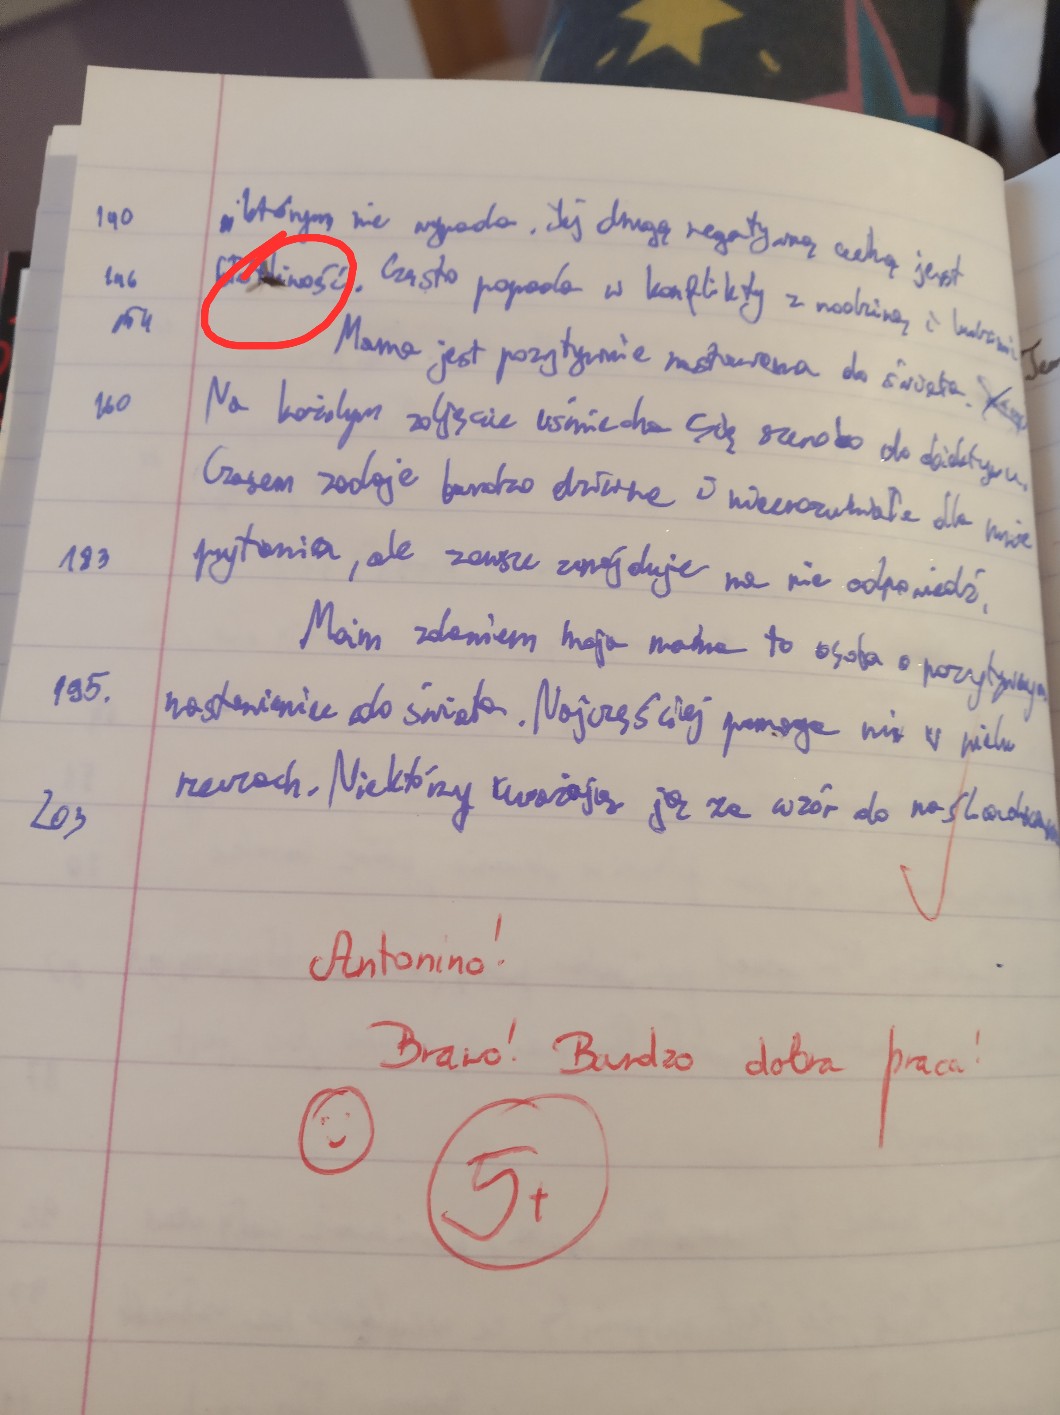 140 którym nie wypada. Jej drugą negatywną cechą jest
146 Często popada w konflikty z rodziną i
154 Mama jest pozytywnie nastawiona do świata.
160 Na każdym zdjęcie uśmiecha się szeroko do
Czasem zadaje bardzo dziwne i niezrozumiałe dla mnie
183 pytania, ale zawsze znajduje na nie odpowiedź.
Moim zdaniem moja mama to osoba o pozytywnym
195. nastawieniu do świata. Najczęściej pomaga nie w wielu
203 rzeczach. Niektórzy uważają ją za wzór do
Antonino!
Brawo! Bardzo dobra praca!
5+